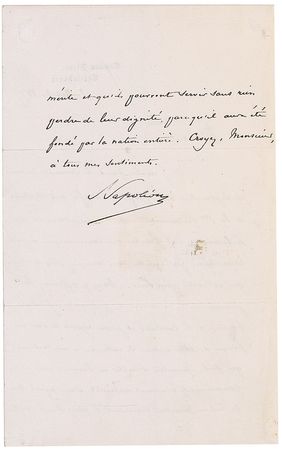 mérite et qu'ils pourront servir sans rien
perdre de leur dignité parcequ'il aura été
fondé par la nation entière. Croyez, Monsieur,
à tous mes sentiments.
Napoléon